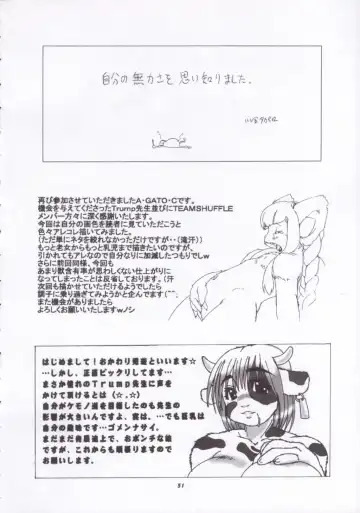 自分の無力さを思い知りました。
再び参加させていただきましたA・GATO・Cです。
機会を与えてくださったTrump先生並びにTEAMSHUFFLE
メンバー方々に深く感謝いたします。
今回は自分の画色を読者に見てもらおうと
色々アレコレ描いてみました。
(ただ単にネタを絞れなかっただけですが・・(滝汗))
もっと老女からもっと乳児まで描きたいのですが、
引かれてもアレなので自分なりに加減したつもりでしw
さらに前回同様、今回も
あまり獣含有率が思わしくない仕上がりに
なってしまったことは反省しております。(汗
次回も描いていただけるようでしたら
調子に乗り過ぎてみようかと企んでます(^^;
また機会がありましたら
よろしくお願いいたしますwノシ
はじめまして!おかわり飛進といいます☆
…しかし、正直ビックリしてます…
まさか憧れのTrump先生に声を
かけて頂けるとは(☆,☆)
自分がケモノ道を目指したのも先生の
影響が大きいんですが、実は、…でも巨乳は
自分の趣味です…ゴメンナサイ。
まだまだ発展途上で、おポンチな娘
ですが、これからも頑張りますので
お願いします。
51